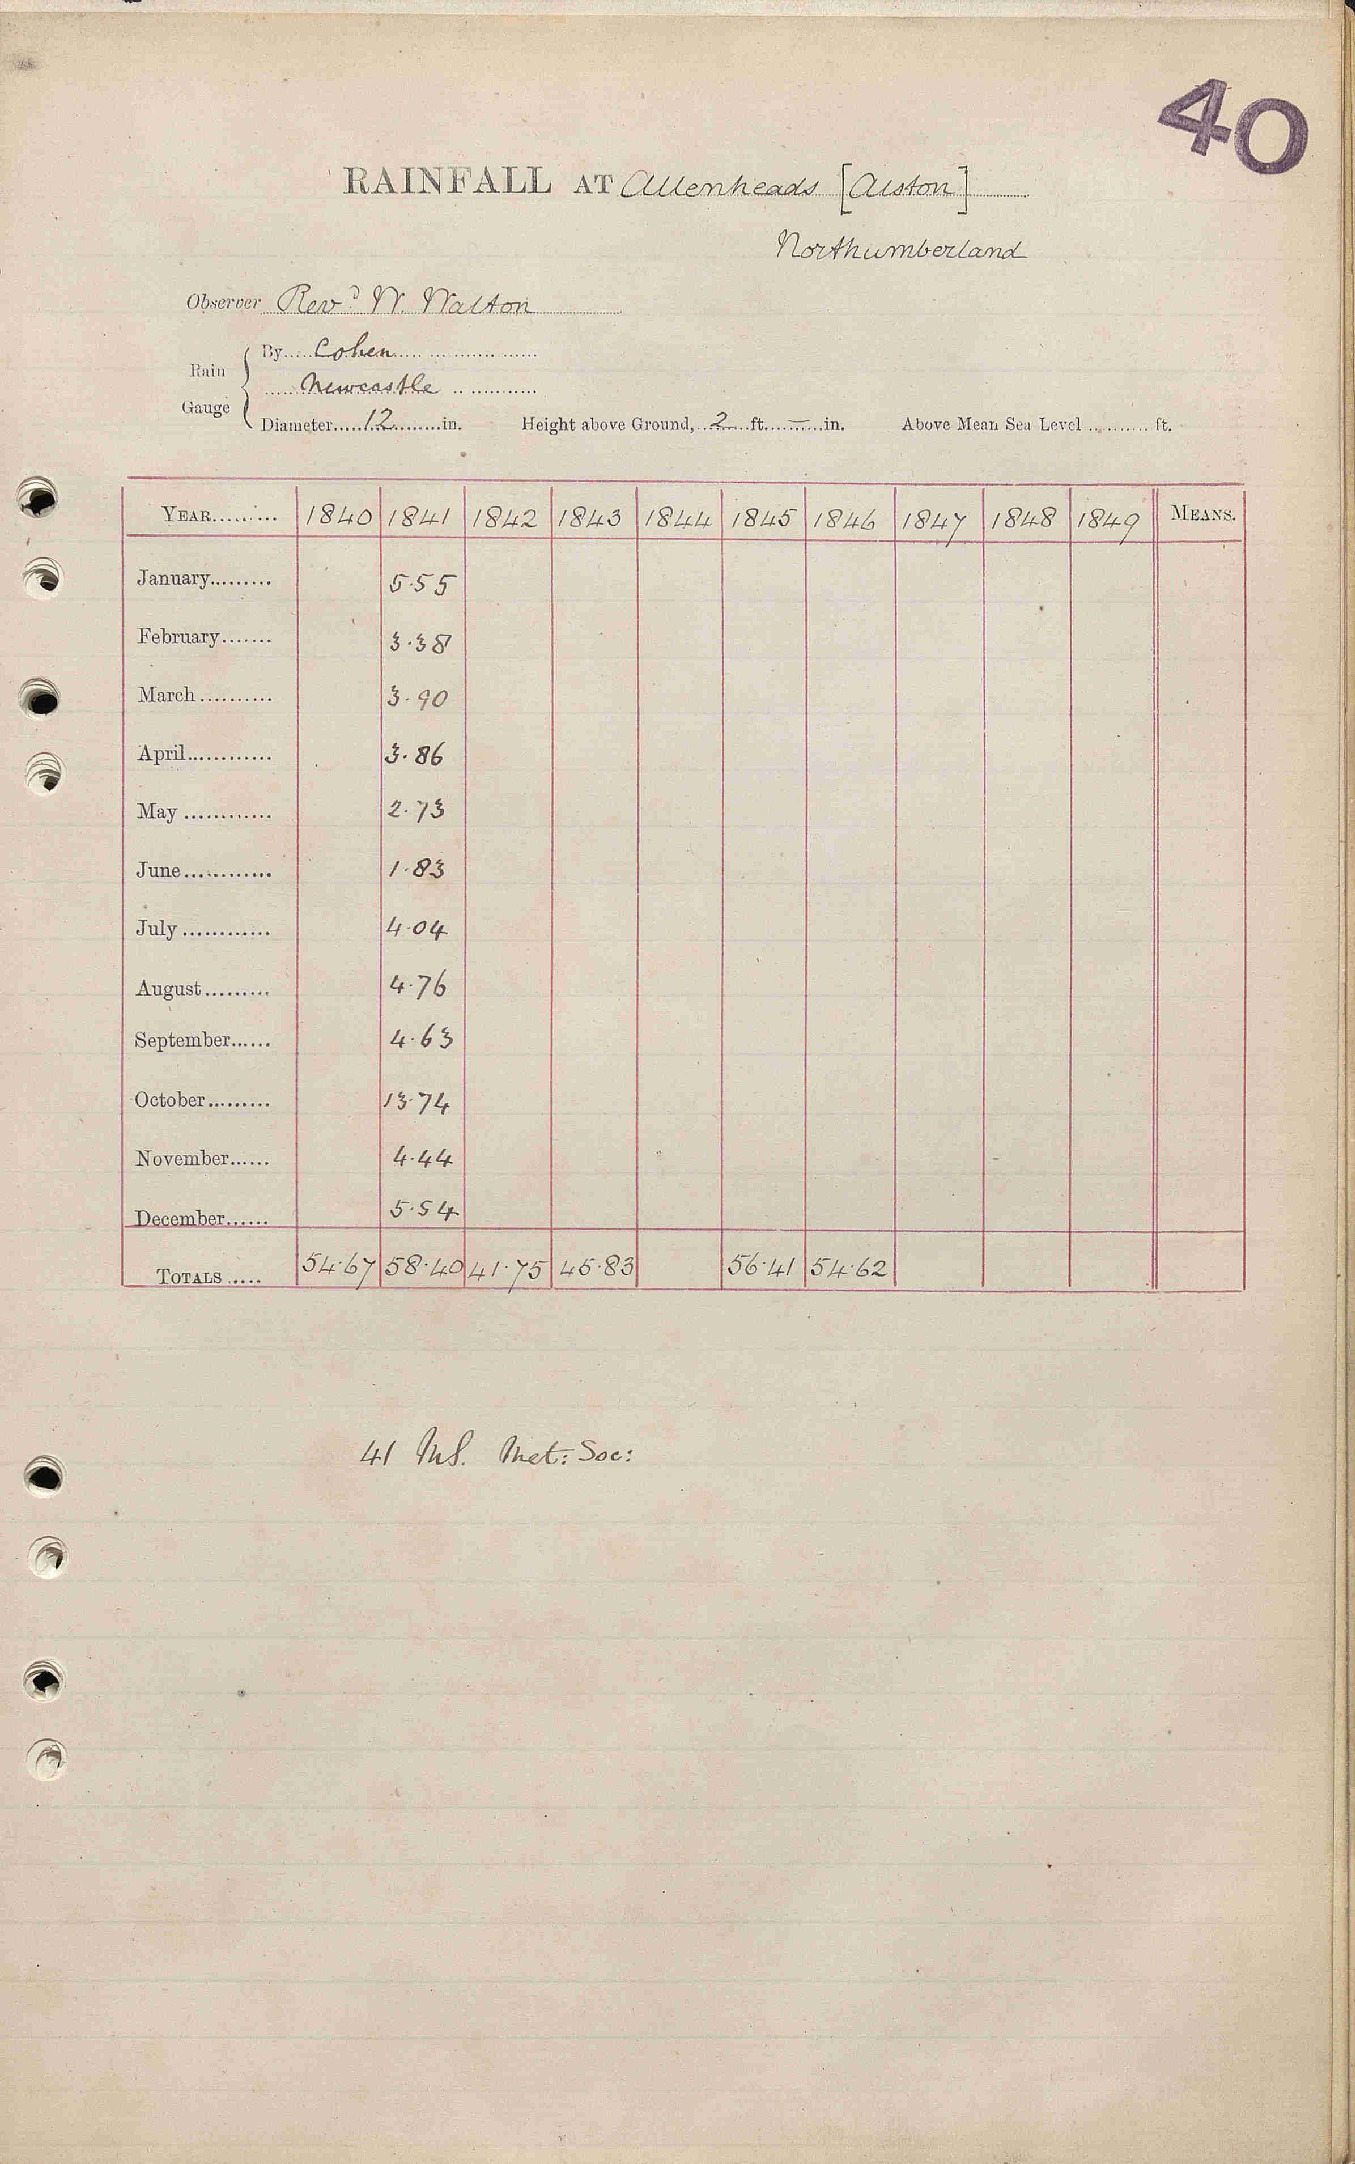 40
RAINFALL AT Allenheads [Alston]
Northumberland
Observer Revd W. Walton
Rain Gauge { By Cohen
Newcastle
Diameter 12 in. Height above Ground, 2 ft. — in. Above Mean Sea Level ft.
YEAR 1840 1841 1842 1843 1844 1845 1846 1847 1848 1849 MEANS.
January 5.55
February 3.38
March 3.90
April 3.86
May 2.73
June 1.83
July 4.04
August 4.76
September 4.63
October 13.74
November 4.44
December 5.54
TOTALS 54.67 58.40 41.75 45.83 56.41 54.62
41 MS. Met: Soc: